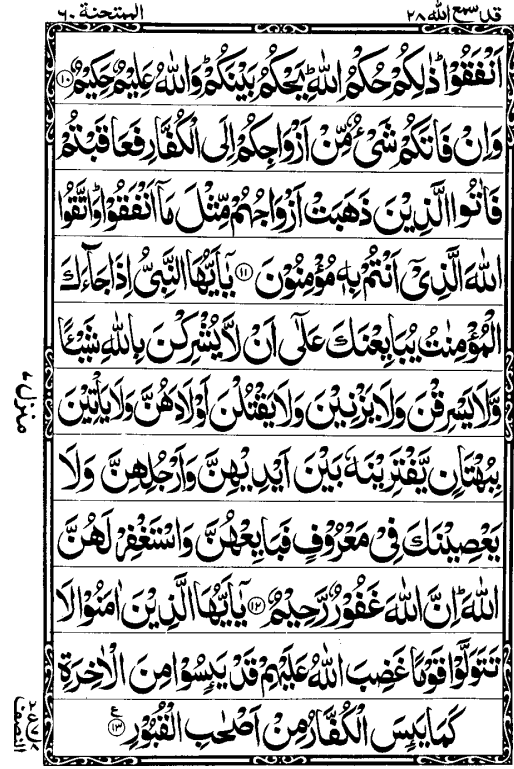 قد سمع الله ٢٨
الممتحنة ٦٠
اَنْفَقُوْا ؕ ذٰلِكُمْ حُكْمُ اللّٰهِ ؕ يَحْكُمُ بَيْنَكُمْ ؕ وَاللّٰهُ عَلِيْمٌ حَكِيْمٌ ﴿١٠﴾
وَاِنْ فَاتَكُمْ شَيْءٌ مِّنْ اَزْوَاجِكُمْ اِلَى الْكُفَّارِ فَعَاقَبْتُمْ
فَاٰتُوا الَّذِيْنَ ذَهَبَتْ اَزْوَاجُهُمْ مِّثْلَ مَاۤ اَنْفَقُوْا ؕ وَاتَّقُوا
اللّٰهَ الَّذِيْۤ اَنْتُمْ بِهٖ مُؤْمِنُوْنَ ﴿١١﴾ يٰۤاَيُّهَا النَّبِيُّ اِذَا جَآءَكَ
الْمُؤْمِنٰتُ يُبَايِعْنَكَ عَلٰۤى اَنْ لَّا يُشْرِكْنَ بِاللّٰهِ شَيْـًٔا
وَّلَا يَسْرِقْنَ وَلَا يَزْنِيْنَ وَلَا يَقْتُلْنَ اَوْلَادَهُنَّ وَلَا يَاْتِيْنَ
بِبُهْتَانٍ يَّفْتَرِيْنَهٗ بَيْنَ اَيْدِيْهِنَّ وَاَرْجُلِهِنَّ وَلَا
يَعْصِيْنَكَ فِيْ مَعْرُوْفٍ فَبَايِعْهُنَّ وَاسْتَغْفِرْ لَهُنَّ
اللّٰهَ ؕ اِنَّ اللّٰهَ غَفُوْرٌ رَّحِيْمٌ ﴿١٢﴾ يٰۤاَيُّهَا الَّذِيْنَ اٰمَنُوْا لَا
تَتَوَلَّوْا قَوْمًا غَضِبَ اللّٰهُ عَلَيْهِمْ قَدْ يَئِسُوْا مِنَ الْاٰخِرَةِ
كَمَا يَئِسَ الْكُفَّارُ مِنْ اَصْحٰبِ الْقُبُوْرِ ﴿١٣﴾
منزل ٧
النصف